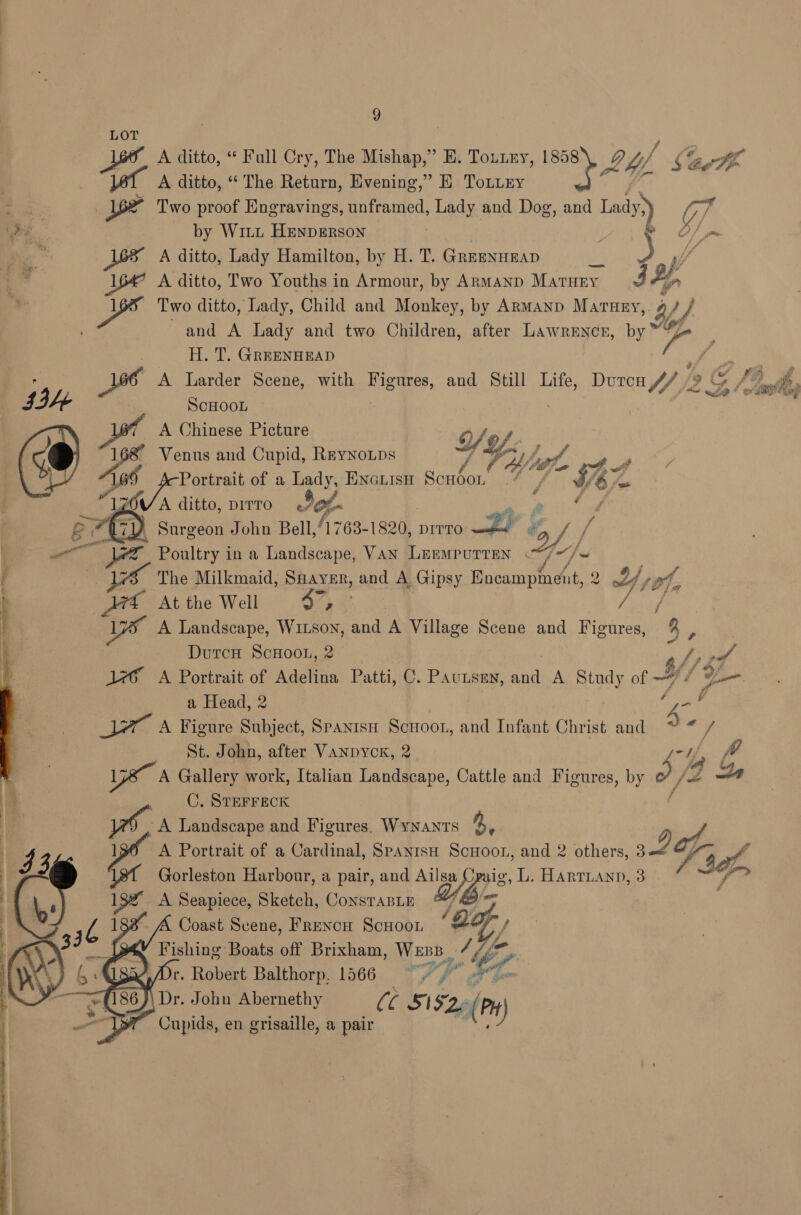 9
LOT
160 A ditto, “ Full Cry, The Mishap,” E. TOLLEY, 1858
161 A ditto, “ The Return, Evening,” E TOLLEY
162 Two proof Engravings, unframed, Lady and Dog, and Lady,
by WILL HENDERSON
163 A ditto, Lady Hamilton, by H. T. GREENHEAD
164 A ditto, Two Youths in Armour, by ARMAND MATHEY
165 Two ditto, Lady, Child and Monkey, by ARMAND MATHEY,
and A Lady and two Children, after LAWRENCE, by
H. T. GREENHEAD
166 A Larder Scene, with Figures, and Still Life, DUTCH
SCHOOL
167 A Chinese Picture
168 Venus and Cupid, REYNOLDS
169 A Portrait of a Lady, ENGLISH SCHOOL
170 A ditto, DITTO
171 Surgeon John Bell, 1763-1820, DITTO
172 Poultry in a Landscape, VAN LEEMPUTTEN
173 The Milkmaid, SHAYER, and A Gipsy Encampment, 2
174 At the Well
175 A Landscape, WILSON, and A Village Scene and Figures,
DUTCH SCHOOL, 2
176 A Portrait of Adelina Patti, C. PAULSEN, and A Study of
a Head, 2
177 A Figure Subject, SPANISH SCHOOL, and Infant Christ and
St. John, after VANDYCK, 2
178 A Gallery work, Italian Landscape, Cattle and Figures, by
C. STEFFECK
179 A Landscape and Figures, WYNANTS
180 A Portrait of a Cardinal, SPANISH SCHOOL, and 2 others, 3
181 Gorleston Harbour, a pair, and Ailsa Craig, L. HARTLAND, 3
182 A Seapiece, Sketch, CONSTABLE
183 A Coast Scene, FRENCH SCHOOL
184 Fishing Boats off Brixham, WEBB
185 Dr. Robert Balthorp, 1566
186 Dr. John Abernethy CC 5152. (PH)
187 Cupids, en grisaille, a pair